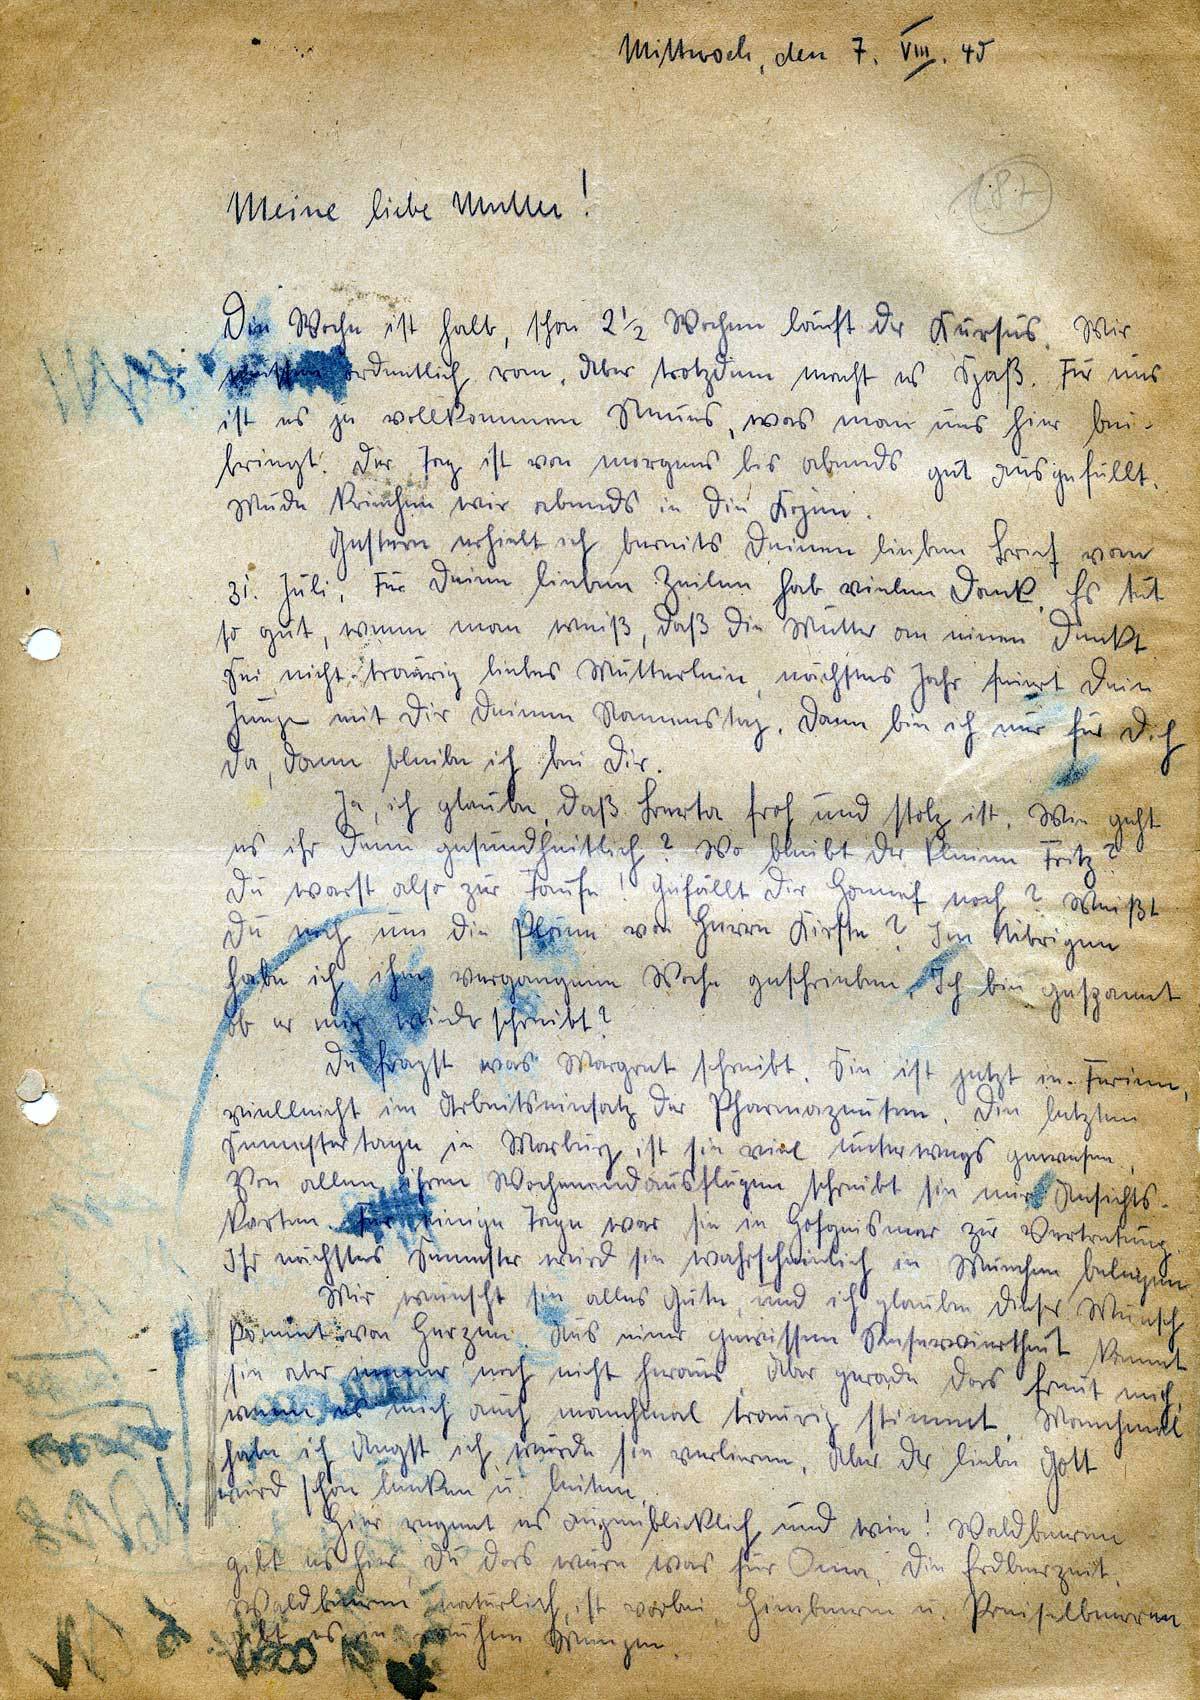 Mittwoch, den 7. VIII. 45
187
Meine liebe Mutter!
Die Woche ist halb, schon 2 1/2 Wochen läuft der Kursus. Wir
müssen ordentlich ran. Aber trotzdem macht es Spaß. Für uns
ist es ja vollkommen Neues, was man uns hier bei-
bringt. Der Tag ist von morgens bis abends gut ausgefüllt.
Müde kriechen wir abends in die Kojen.
Gestern erhielt ich bereits Deinen lieben Brief vom
31. Juli. Für Deine lieben Zeilen hab vielen Dank. Es tut
so gut, wenn man weiß, daß die Mutter an einen denkt
Sei nicht traurig liebes Mütterlein, nächstes Jahr feiert Dein
Junge mit Dir Deinen Namenstag. Dann bin ich nur für Dich
da, dann bleibe ich bei Dir.
Ja, ich glaube, daß Berta froh und stolz ist. Wie geht
es ihr denn gesundheitlich? Wo bleibt der kleine Fritz?
Du warst also zur Taufe! Gefällt Dir Honnef noch? Weißt
Du noch um die Pläne von Herrn Kirfte? Im Übrigen
habe ich ihm vergangene Woche geschrieben. Ich bin gespannt
ob er mir wieder schreibt?
Du fragst was Margret schreibt. Sie ist jetzt in Ferien,
vielleicht im Arbeitseinsatz der Pharmazeuten. Die letzten
Semestertage in Marburg ist sie viel unterwegs gewesen.
Von allen ihren Wochenendausflügen schreibt sie mir Ansichts-
karten. Für einige Tage war sie in Hofgeismar zur Vertretung.
Ihr nächstes Semester wird sie wahrscheinlich in München belegen
Mir wünscht sie alles Gute, und ich glaube dieser Wunsch
kommt von Herzen. Aus einer gewissen Reserviertheit kommt
sie aber immer noch nicht heraus. Aber gerade das freut mich,
wenn es mich auch manchmal traurig stimmt. Manchmal
habe ich Angst ich würde sie verlieren. Aber der liebe Gott
wird schon lenken u. leiten.
Hier regnet es augenblicklich und wie! Waldbeeren
gibt es hier, Du das wäre was für Oma. Die Erdbeerzeit,
Waldbeeren natürlich, ist vorbei. Himbeeren u. Preiselbeeren
gibt es in rauhen Mengen.